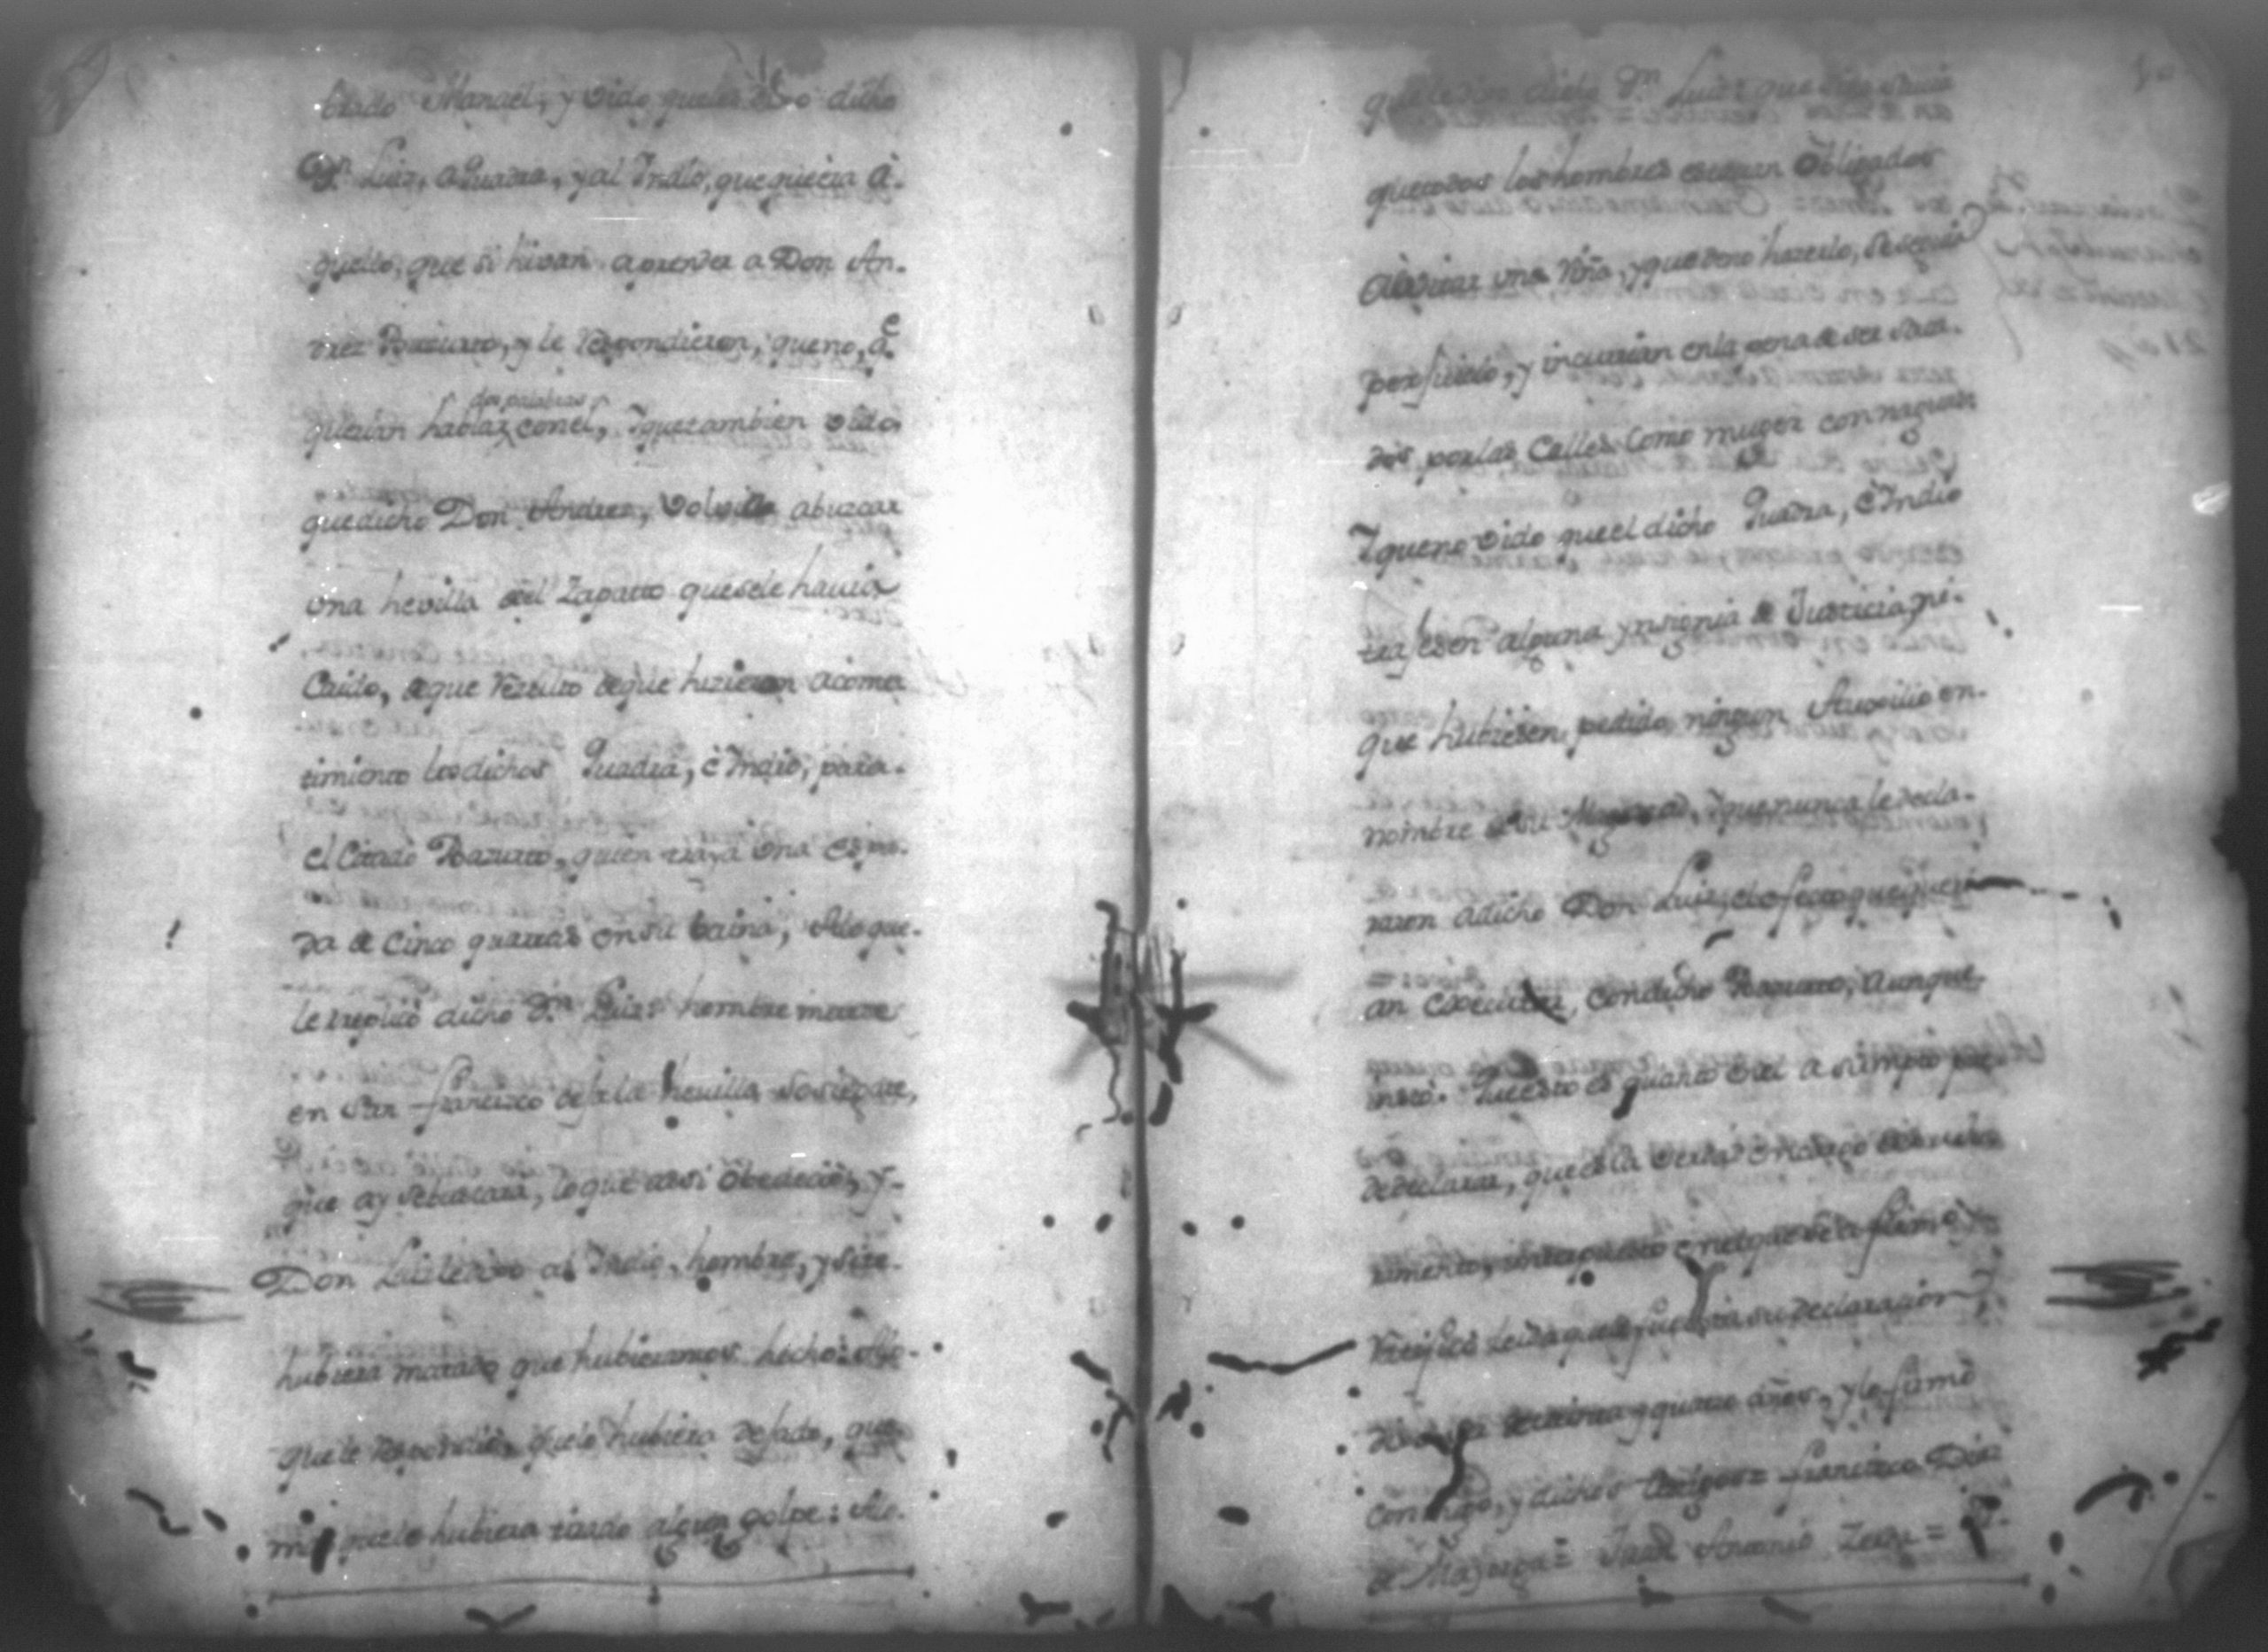 tado Manuel, y vido que les dixo dicho
Dn. Luis, a Quadra, y al Indio, que queria a-
quello, que si hivan aprender a Don An-
drez Bazurto, y le respondieron, que no, q.e
querian hablar dos palabras con el, Y que tambien vido
que dicho Don Andrez, volvió a buzcar
una hevilla del Zapatto que se le havia
Caido, de que resulto de que hizieron acome-
timiento los dichos Quadra, é Indio, para
el Citado Bazurto, quien traya una espa-
da de Cinco quartas en su baina, A lo que
le replicó dicho Dn. Luis: hombre metete
en San Francisco deja la hevilla
que ay se buscara, lo que assi obedeció, y
Don Luis le dixo al Indio, hombre, y si te
hubiera matado que hubieramos hecho: A lo
que le respondió, que lo hubiera dejado, que
mas que le hubiera tirado algun golpe: A lo
que le dixo dicho Dn. Luis que
que todos los hombres estavan obligados
a una Riña, y que de no hazerlo, se seguia
perjuicio, y incurrian en la pena de ser saca-
dos por las Calles Como muger con naguas
Y que no vido que el dicho Quadra, é Indio
trajesen alguna ynsignia de Justicia, ni
que hubiesen pedido ningun Auxilio en
nombre de su Magestad, Y que nunca le decla-
raron a dicho Don Luis, el efecto que queri-
an executar, con dicho Bazurto, aunque
instó. Que esto es quanto en el asumpto pue-
de declarar, que es la verdad en cargo de su jura-
mento, en el que se afirmó y
ratificó leida que le fue esta su declaracion,
de treinta y quatro años, y lo firmó
conmigo, y dichos testigos = Francisco Diaz
de Mayorga = Juan Antonio